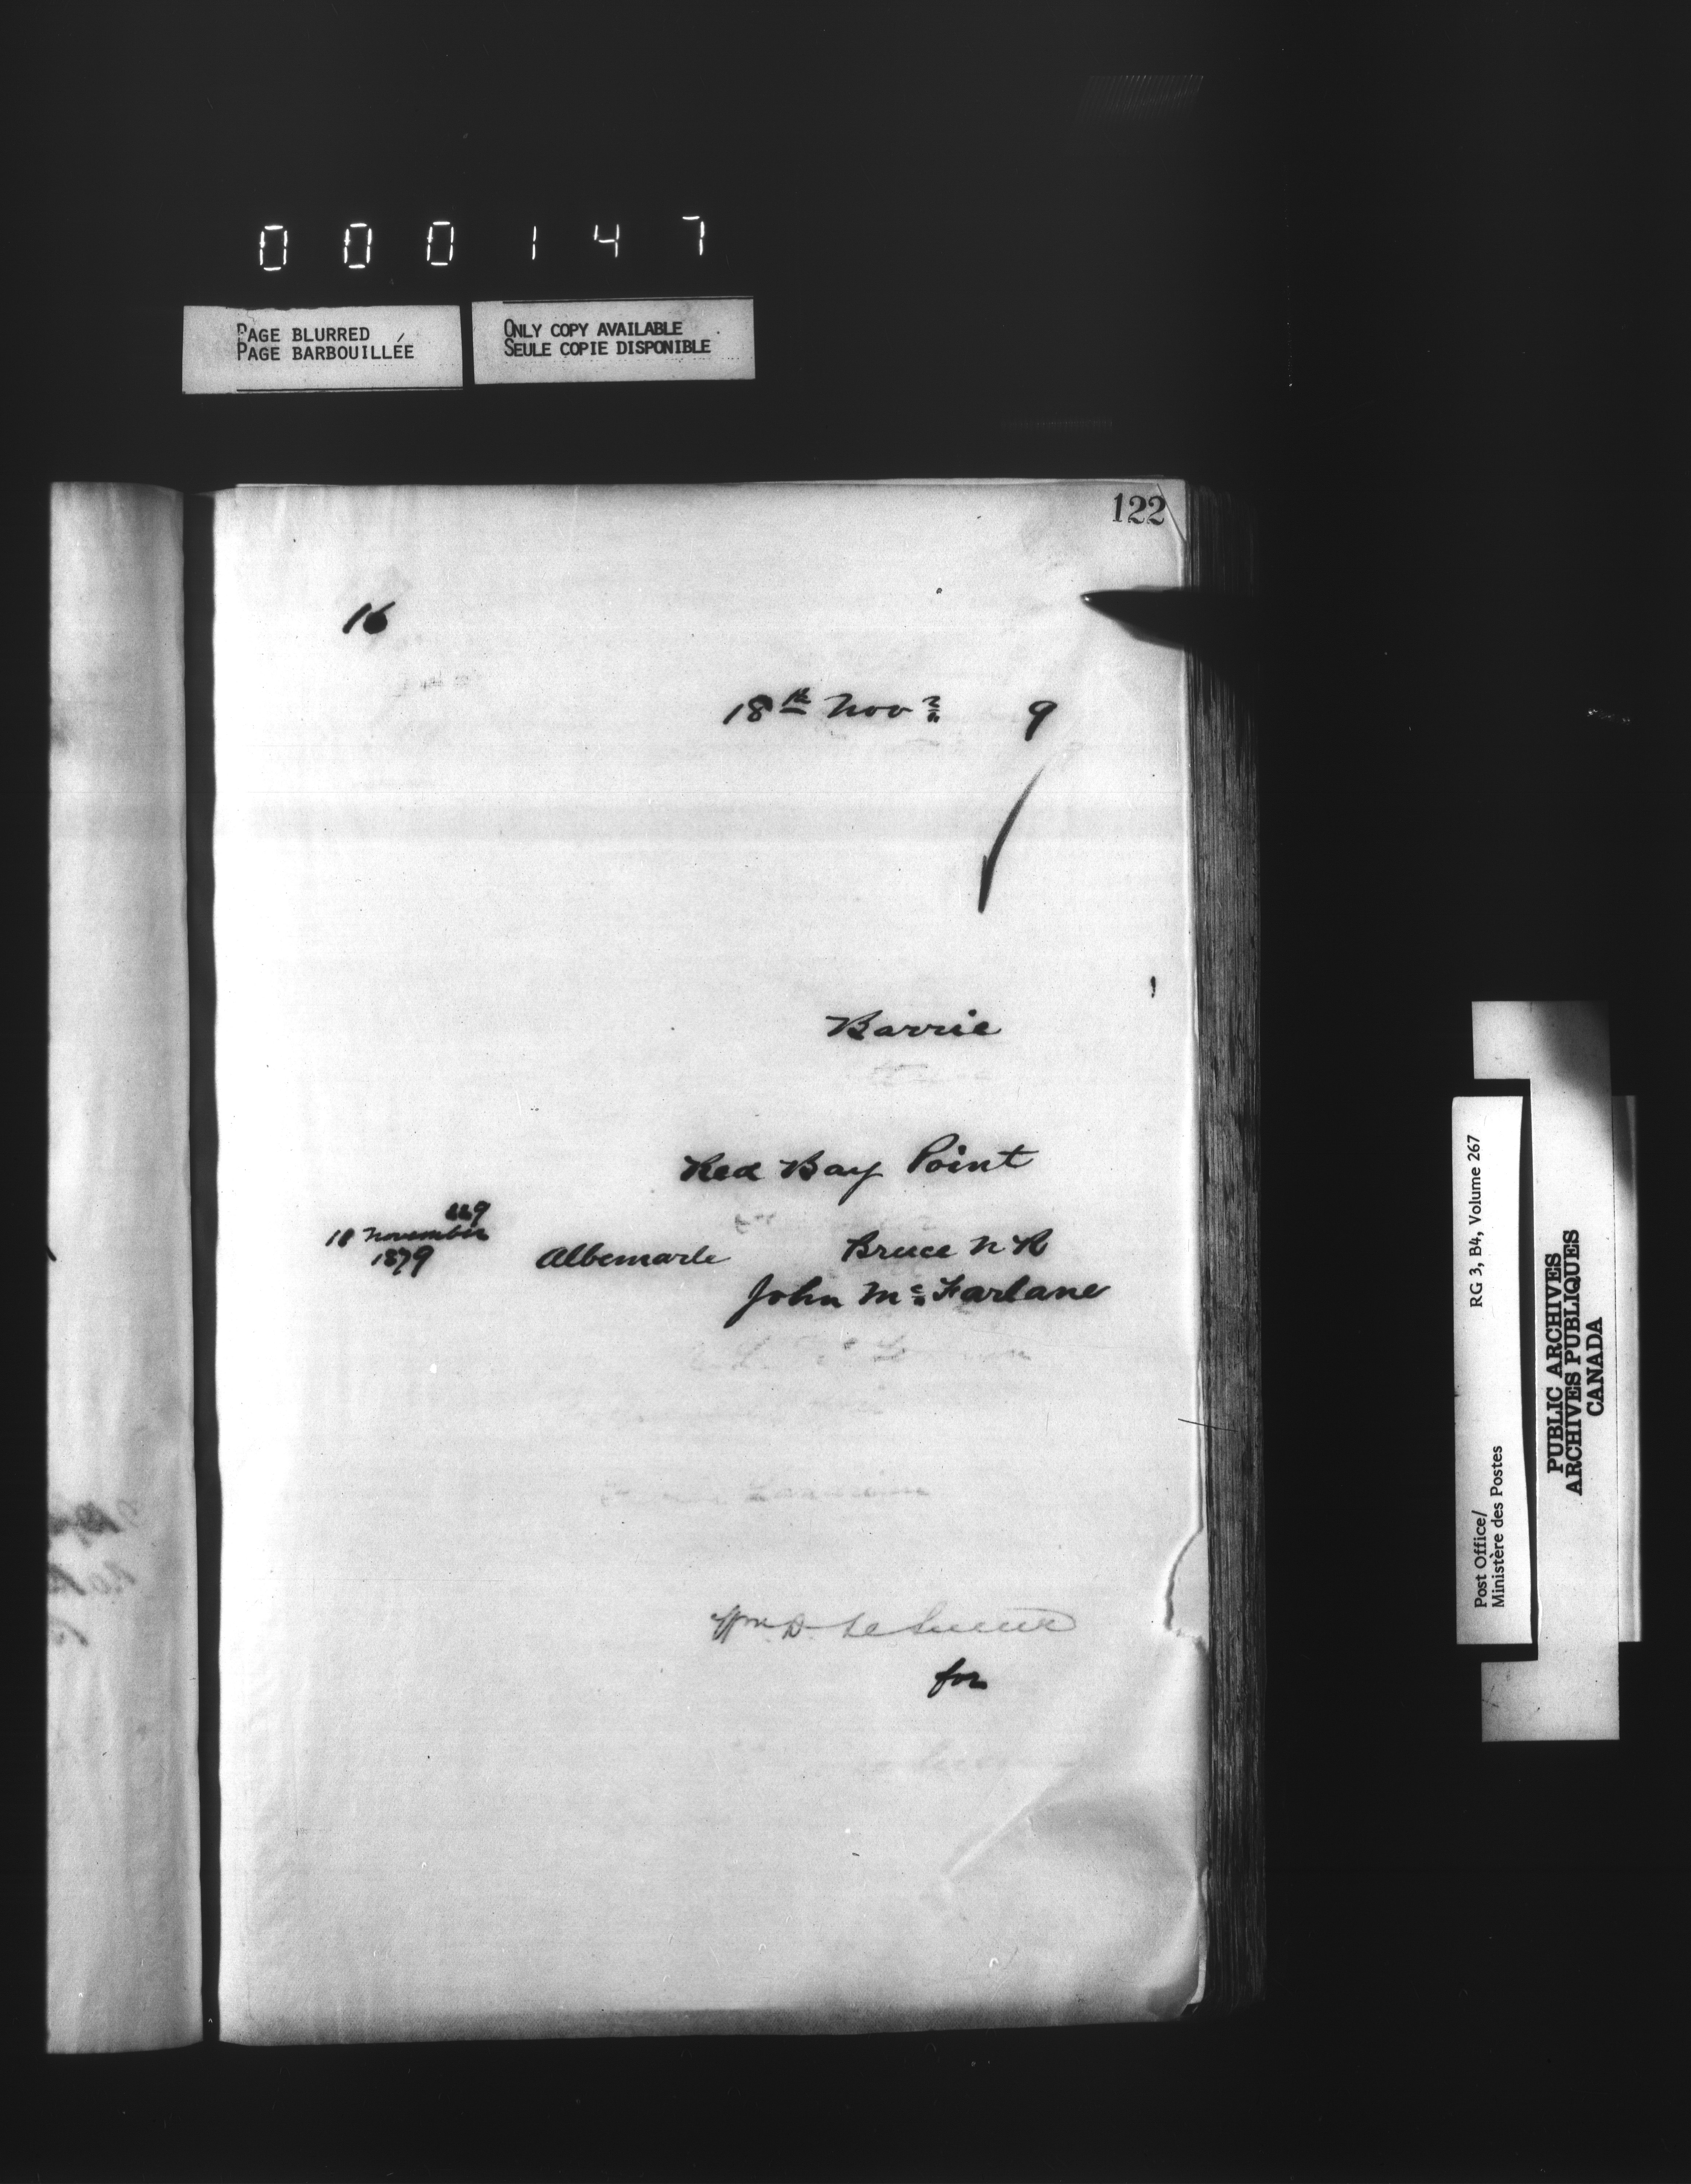 000147
PAGE BLURRED
PAGE BARBOUILLÉE
ONLY COPY AVAILABLE
SEULE COPIE DISPONIBLE
122
16
18th Novr 9
Barrie
Red Bay Point
229
18 November
1879
Albemarle
Bruce N R
John McFarlane
Wm D. Le Sueur
for
RG 3, B4, Volume 267
Post Office/
Ministère des Postes
PUBLIC ARCHIVES
ARCHIVES PUBLIQUES
CANADA